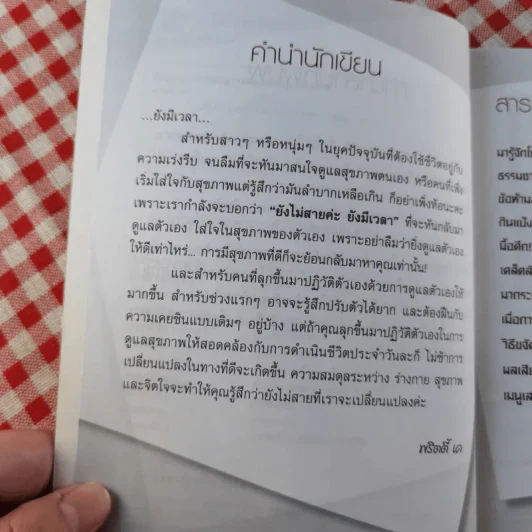 คำนำนักเขียน
...ยังมีเวลา...
สำหรับสาวๆ หรือหนุ่มๆ ในยุคปัจจุบันที่ต้องใช้ชีวิตอยู่กับ
ความเร่งรีบ จนลืมที่จะหันมาสนใจดูแลสุขภาพตนเอง หรือคนที่เพิ่ง
เริ่มใส่ใจกับสุขภาพแต่รู้สึกว่ามันลำบากเหลือเกิน ก็อย่าเพิ่งท้อนะคะ
เพราะเรากำลังจะบอกว่า “ยังไม่สายค่ะ ยังมีเวลา” ที่จะหันกลับมา
ดูแลตัวเอง ใส่ใจในสุขภาพของตัวเอง เพราะอย่าลืมว่ายิ่งดูแลตัวเอง
ให้ดีเท่าไหร่... การมีสุขภาพที่ดีก็จะย้อนกลับมาหาคุณเท่านั้น!
และสำหรับคนที่ลุกขึ้นมาปฏิวัติตัวเองด้วยการดูแลตัวเองให้
มากขึ้น สำหรับช่วงแรกๆ อาจจะรู้สึกปรับตัวได้ยาก และต้องฝืนกับ
ความเคยชินแบบเดิมๆ อยู่บ้าง แต่ถ้าคุณลุกขึ้นมาปฏิวัติตัวเองในการ
ดูแลสุขภาพให้สอดคล้องกับการดำเนินชีวิตประจำวันละก็ ไม่ช้าการ
เปลี่ยนแปลงในทางที่ดีจะเกิดขึ้น ความสมดุลระหว่าง ร่างกาย สุขภาพ
และจิตใจจะทำให้คุณรู้สึกว่ายังไม่สายที่เราจะเปลี่ยนแปลงค่ะ
พริตตี้ เค
สาร
มารู้จักโ
ธรรมชา
ข้อห้าม
กินแป้ง
มื้อดึก!
เคล็ดลั
มากระ
เมื่อกา
วิธีขจัด
ผลเสีย
เมนูเส